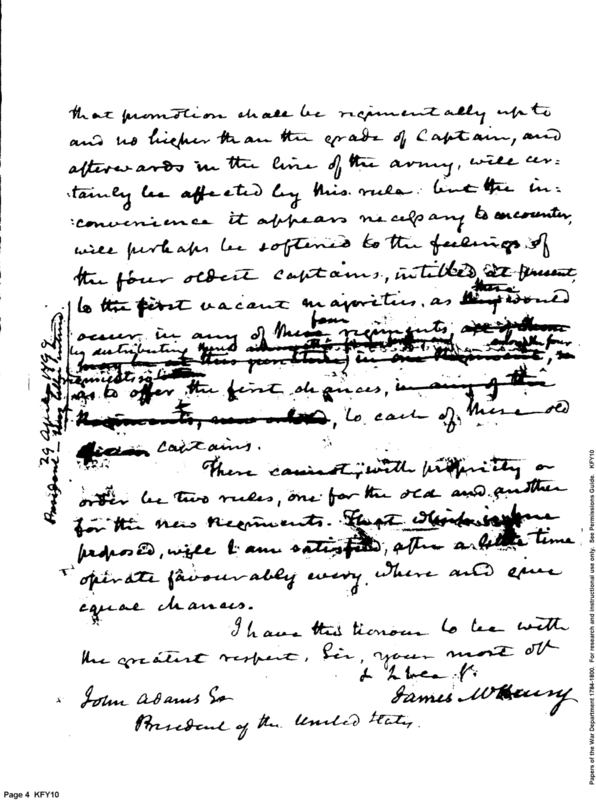 that promotion shall be regimentally up to
and no higher than the grade of Captain, and
afterwards in the line of the army, will cer=
tainly be affected by this rule. but the in=
=convenience it appears necessary to encounter,
will perhaps be softened to the feelings of
the four oldest Captains, intitled at present,
to the first vacant majorities, as there would
occur in any of these four regiments,
by distributing them among the four
as to offer the first chances, in any of the
Regiments, to each of these old
Captains.
There cannot, with propriety or
order be two rules, one for the old and another
for the new Regiments. That which is
proposed, will I am satisfied, after a little time
operate favourably every where and give
equal chances.
I have the honour to be with
the greatest respect, Sir, your most ob
James McHenry
John Adams Esq
President of the United States.
29 April 1799
Page 4 KFY10
Papers of the War Department 1784-1800. For research and instructional use only. See Permissions Guide. KFY10